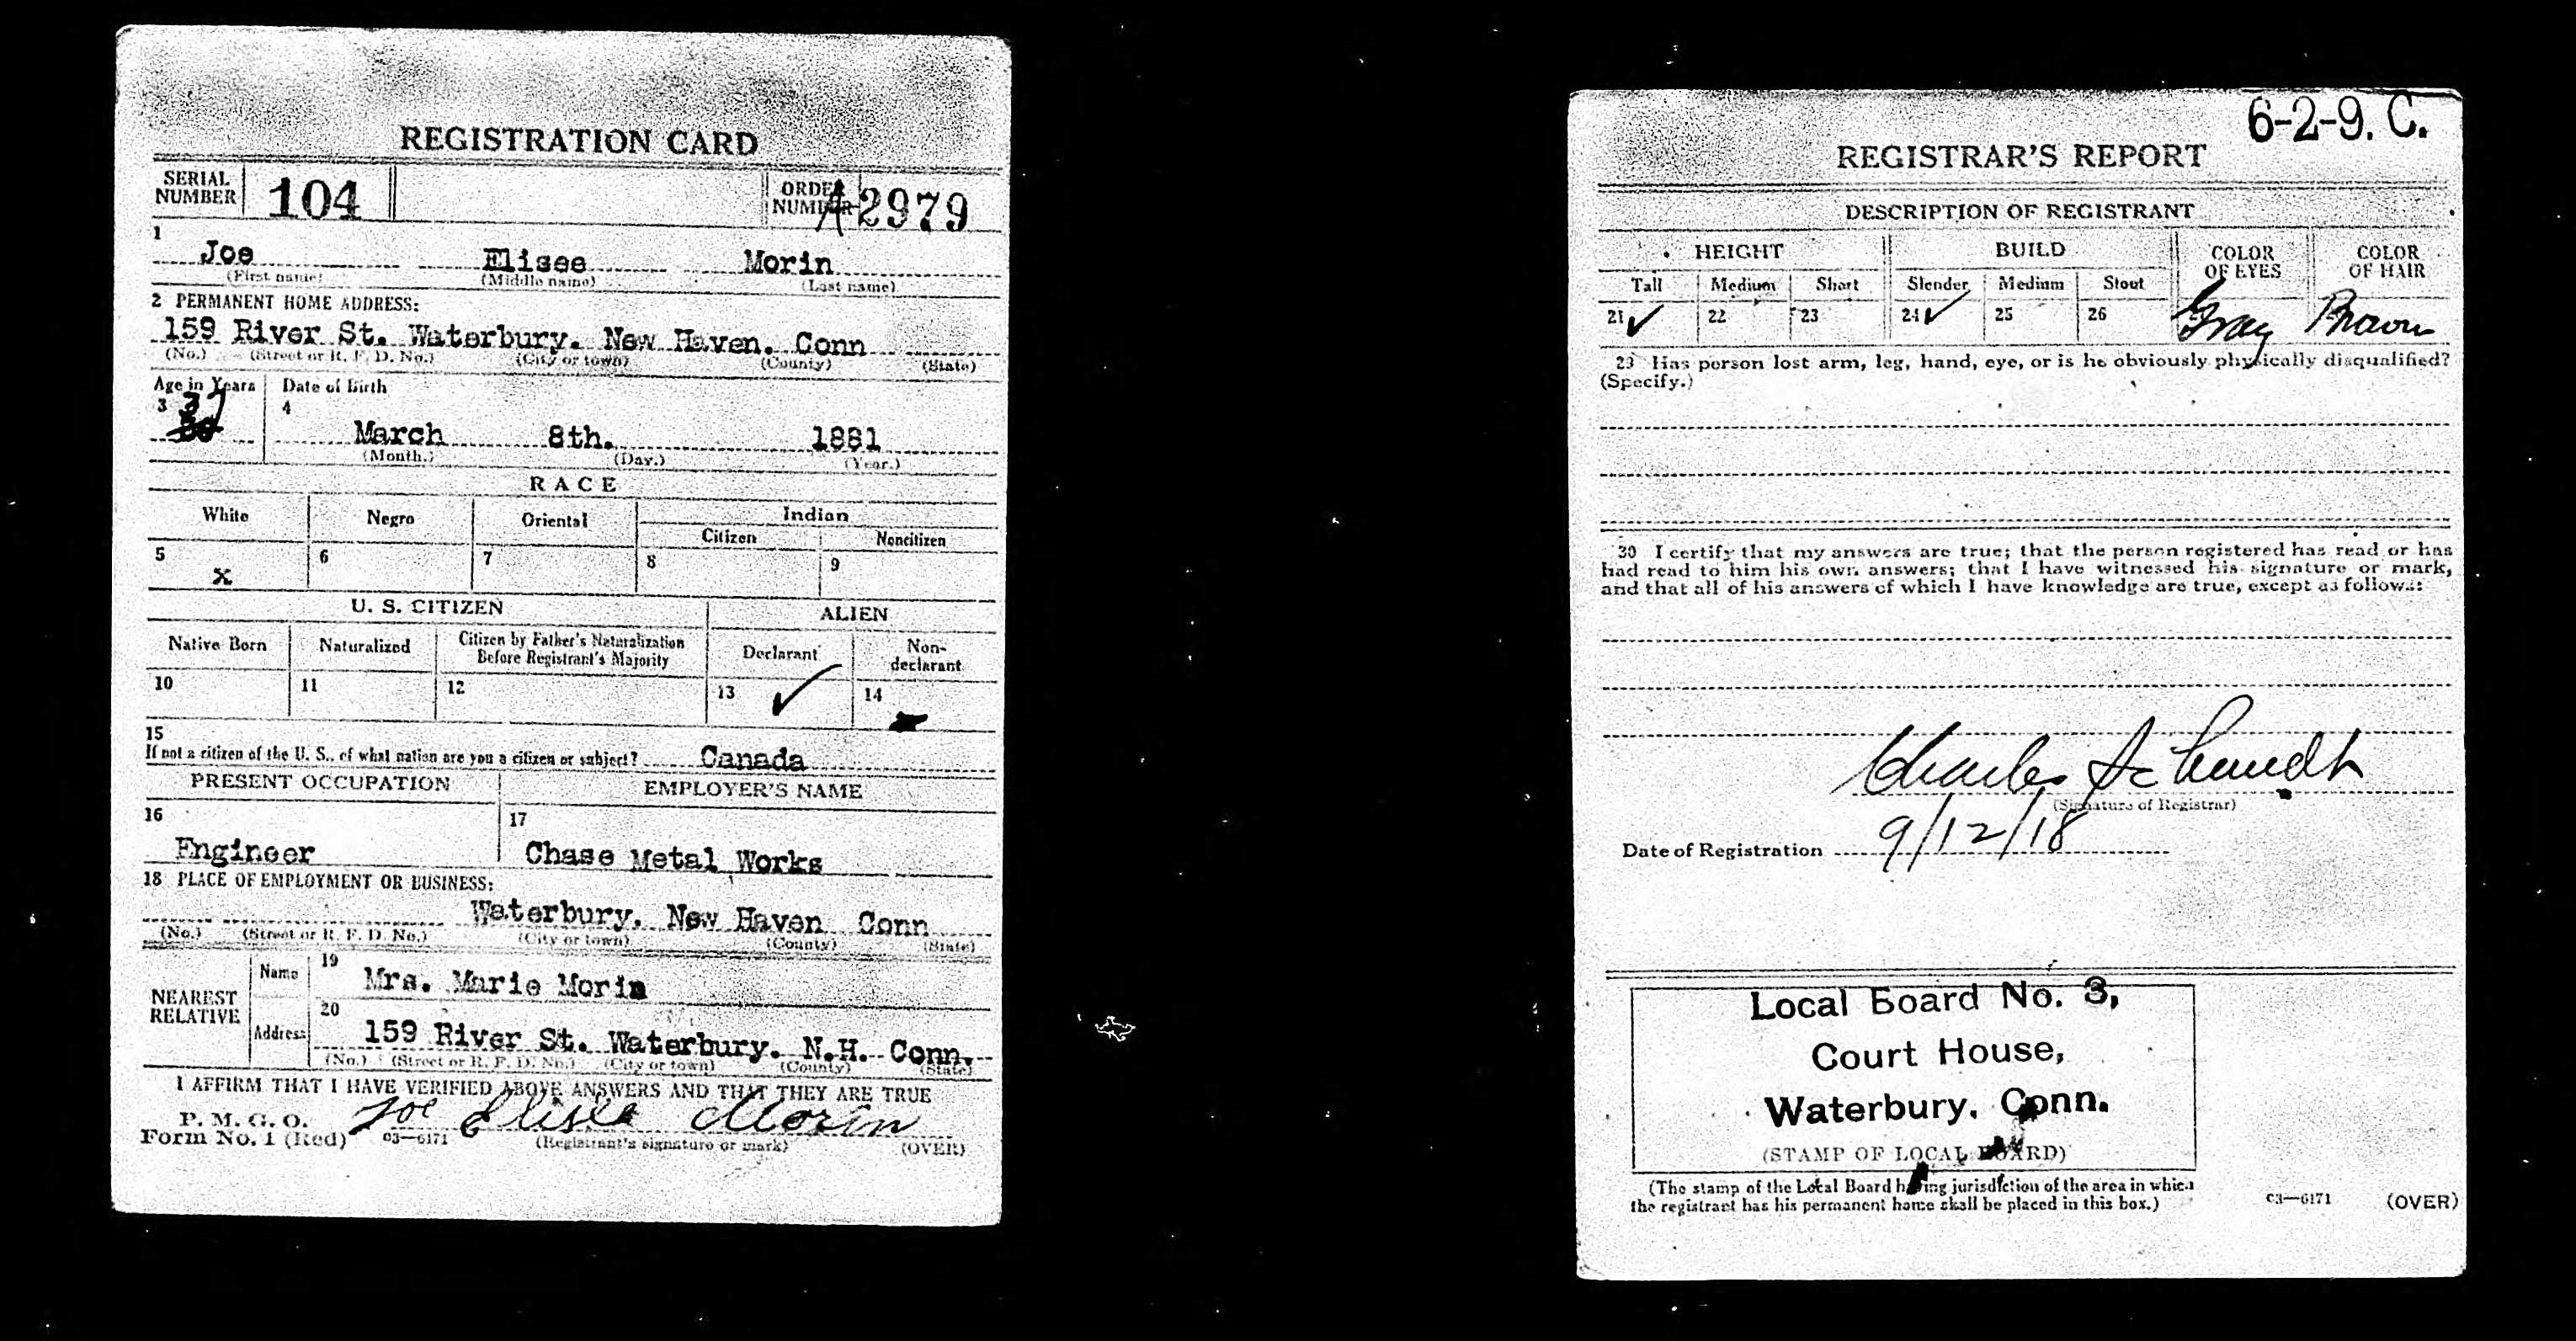 REGISTRATION CARD
SERIAL NUMBER 104 ORDER NUMBER A 2979
1 Joe Elisee Morin
(First name) (Middle name) (Last name)
2 PERMANENT HOME ADDRESS:
159 River St. Waterbury. New Haven. Conn
(No.) (Street or R. F. D. No.) (City or town) (County) (State)
Age in Years Date of Birth
3 37 4
March 8th. 1881
(Month.) (Day.) (Year.)
RACE
White Negro Oriental Indian
Citizen Noncitizen
5 6 7 8 9
X
U. S. CITIZEN ALIEN
Native Born Naturalized Citizen by Father's Naturalization Before Registrant's Majority Declarant Non-declarant
10 11 12 13 ✓ 14
15
If not a citizen of the U. S., of what nation are you a citizen or subject? Canada
PRESENT OCCUPATION EMPLOYER'S NAME
16 17
Engineer Chase Metal Works
18 PLACE OF EMPLOYMENT OR BUSINESS:
Waterbury. New Haven Conn
(No.) (Street or R. F. D. No.) (City or town) (County) (State)
NEAREST RELATIVE
Name 19 Mrs. Marie Morin
Address 20 159 River St. Waterbury. N.H. Conn.
(No.) (Street or R. F. D. No.) (City or town) (County) (State)
I AFFIRM THAT I HAVE VERIFIED ABOVE ANSWERS AND THAT THEY ARE TRUE
P. M. G. O.
Form No. 1 (Red) 03—6171 Joe Elisee Morin
(Registrant's signature or mark) (OVER)
6-2-9. C.
REGISTRAR'S REPORT
DESCRIPTION OF REGISTRANT
HEIGHT BUILD COLOR OF EYES COLOR OF HAIR
Tall Medium Short Slender Medium Stout
21 ✓ 22 23 24 ✓ 25 26 Gray Brown
29 Has person lost arm, leg, hand, eye, or is he obviously physically disqualified?
(Specify.)
30 I certify that my answers are true; that the person registered has read or has
had read to him his own answers; that I have witnessed his signature or mark,
and that all of his answers of which I have knowledge are true, except as follows:
Charles Schmidt
(Signature of Registrar)
Date of Registration 9/12/18
Local Board No. 3,
Court House,
Waterbury, Conn.
(STAMP OF LOCAL BOARD)
(The stamp of the Local Board having jurisdiction of the area in which
the registrant has his permanent home shall be placed in this box.)
03—6171 (OVER)